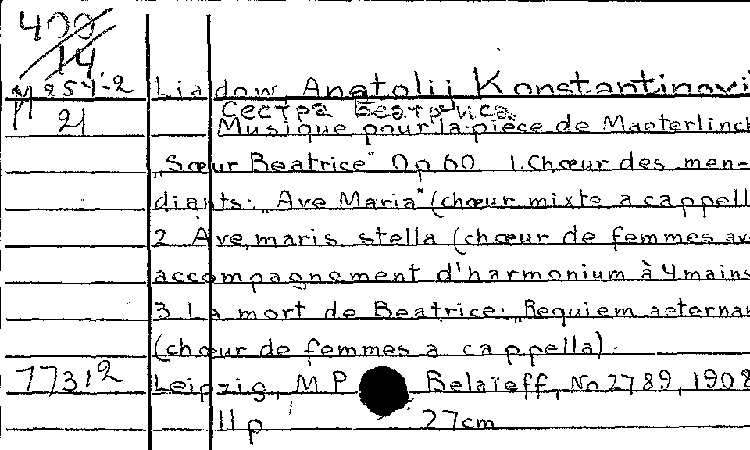 499
14
M 257-2
21
Liadow, Anatolij Konstantinovi
Сестра Беатриса.
Musique pour la pièce de Maeterlinck
„Sœur Beatrice" Op 60 1. Chœur des men-
diants: „Ave Maria" (chœur mixte a cappell
2 Ave, maris stella (chœur de femmes av
accompagnement d'harmonium à 4 mains
3 La mort de Beatrice: „Requiem aeternam
(chœur de femmes a cappella).
77312 Leipzig, M P Belaïeff, No 2789, 1908
11 p 27 cm